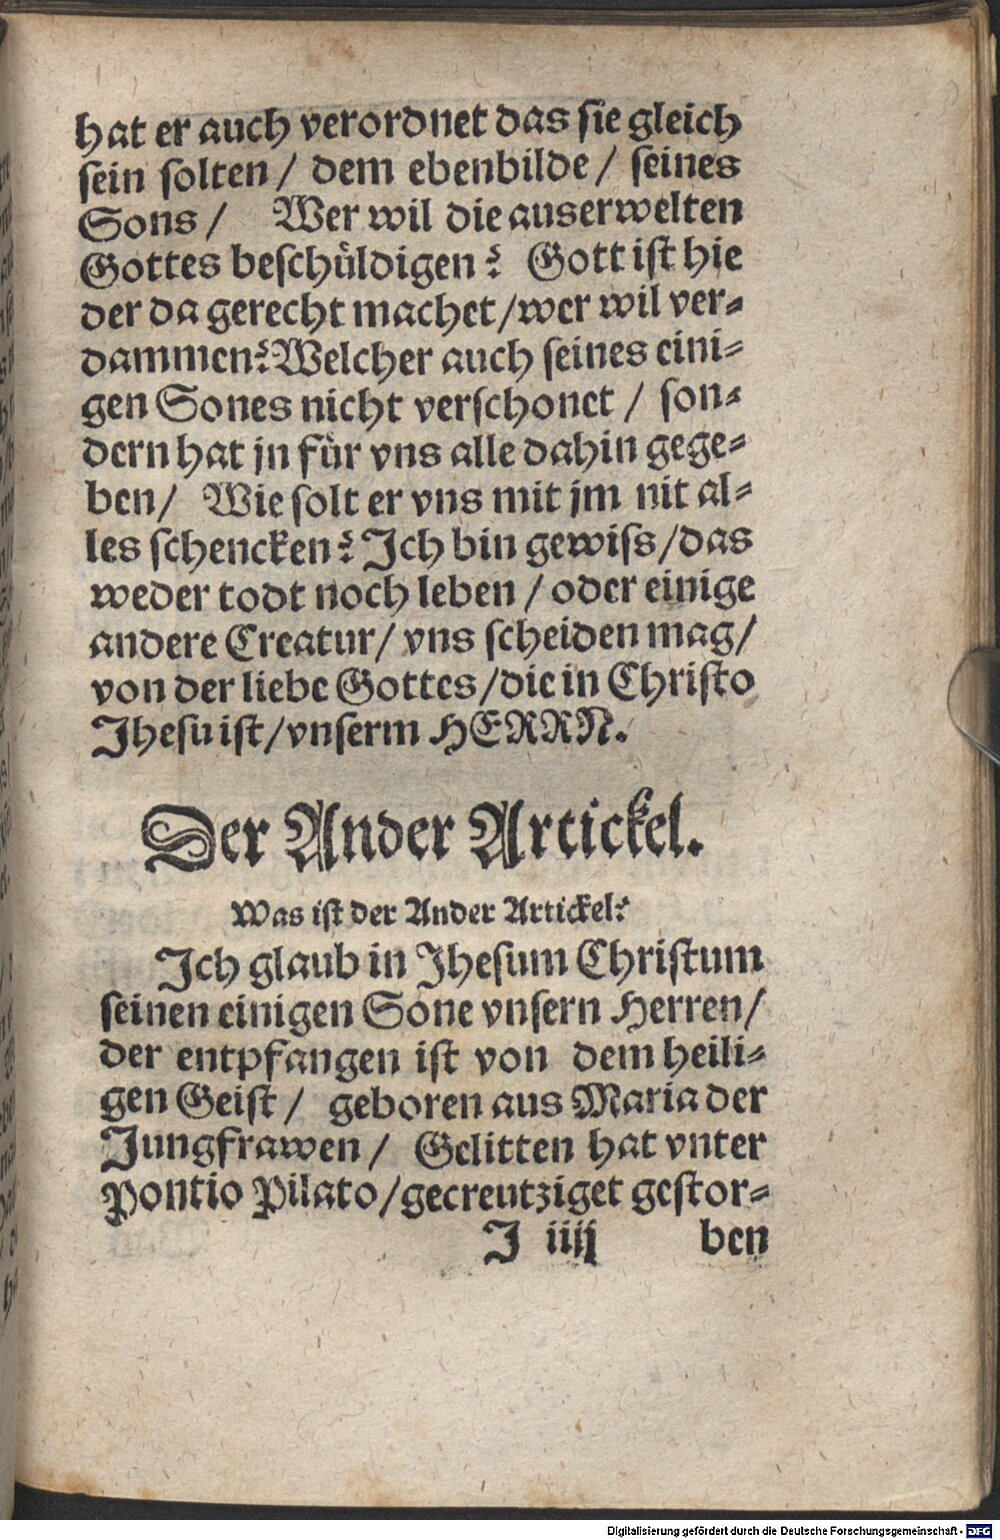 hat er auch verordnet das sie gleich
sein solten / dem ebenbilde / seines
Sons / Wer wil die auserwelten
Gottes beschüldigen? Gott ist hie
der da gerecht machet / wer wil ver-
dammen? Welcher auch seines eini-
gen Sones nicht verschonet / son-
dern hat jn für vns alle dahin gege-
ben / Wie solt er vns mit jm nit al-
les schencken? Ich bin gewiss / das
weder todt noch leben / oder einige
andere Creatur / vns scheiden mag /
von der liebe Gottes / die in Christo
Jhesu ist / vnserm HERRN.
Der Ander Artickel.
Was ist der Ander Artickel?
Ich glaub in Jhesum Christum
seinen einigen Sone vnsern Herren /
der entpfangen ist von dem heili-
gen Geist / geboren aus Maria der
Jungfrawen / Gelitten hat vnter
Pontio Pilato / gecreutziget gestor-
J iiij ben
Digitalisierung gefördert durch die Deutsche Forschungsgemeinschaft - DFG